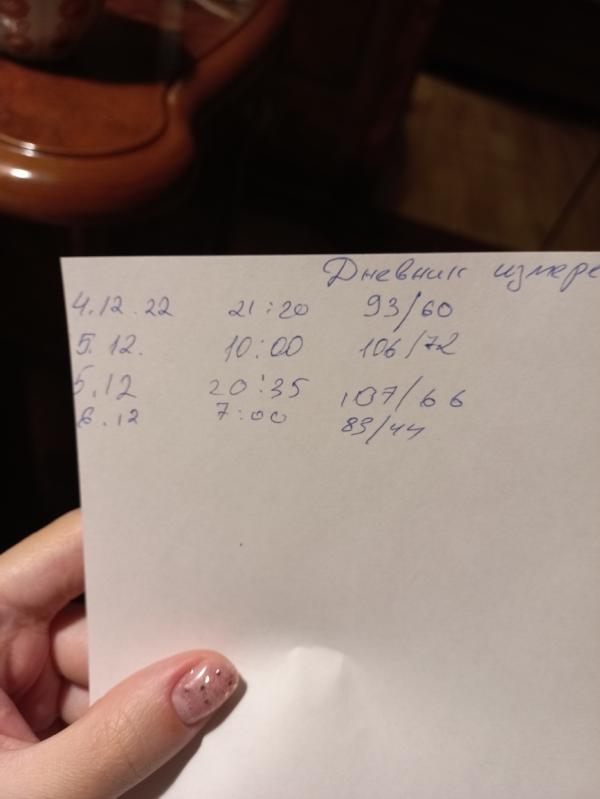 Дневник измере
4.12.22 21:20 93/60
5.12. 10:00 106/72
5.12 20:35 107/66
6.12 7:00 83/44